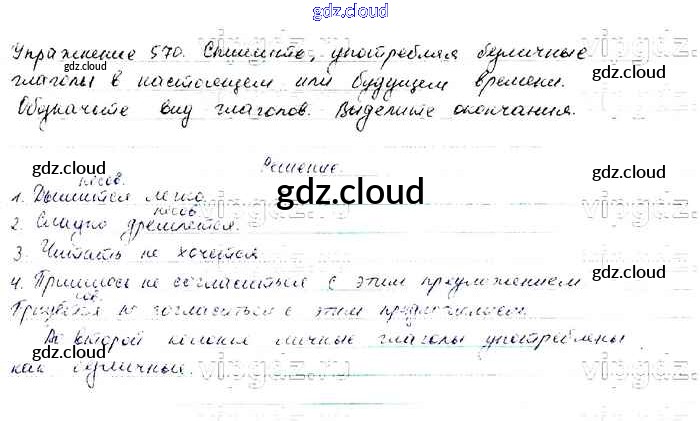 gdz.cloud
Упражнение 570. Спишите, употребляя безличные
глаголы в настоящем или будущем времени.
Обозначьте вид глаголов. Выделите окончания.
gdz.cloud
gdz.cloud
gdz.cloud
Решение.
gdz.cloud
gdz.cloud
несов.
1. Дышится легко.
gdz.cloud
несов.
2. Сладко дремлется.
gdz.cloud
gdz.cloud
3. Читать не хочется
4. Пришлось не согласиться с этим предложением
gdz.cloud
сов.
Придётся не согласиться с этим предложением.
gdz.cloud
gdz.cloud
Во второй колонке личные глаголы употреблены
gdz.cloud
как безличные.